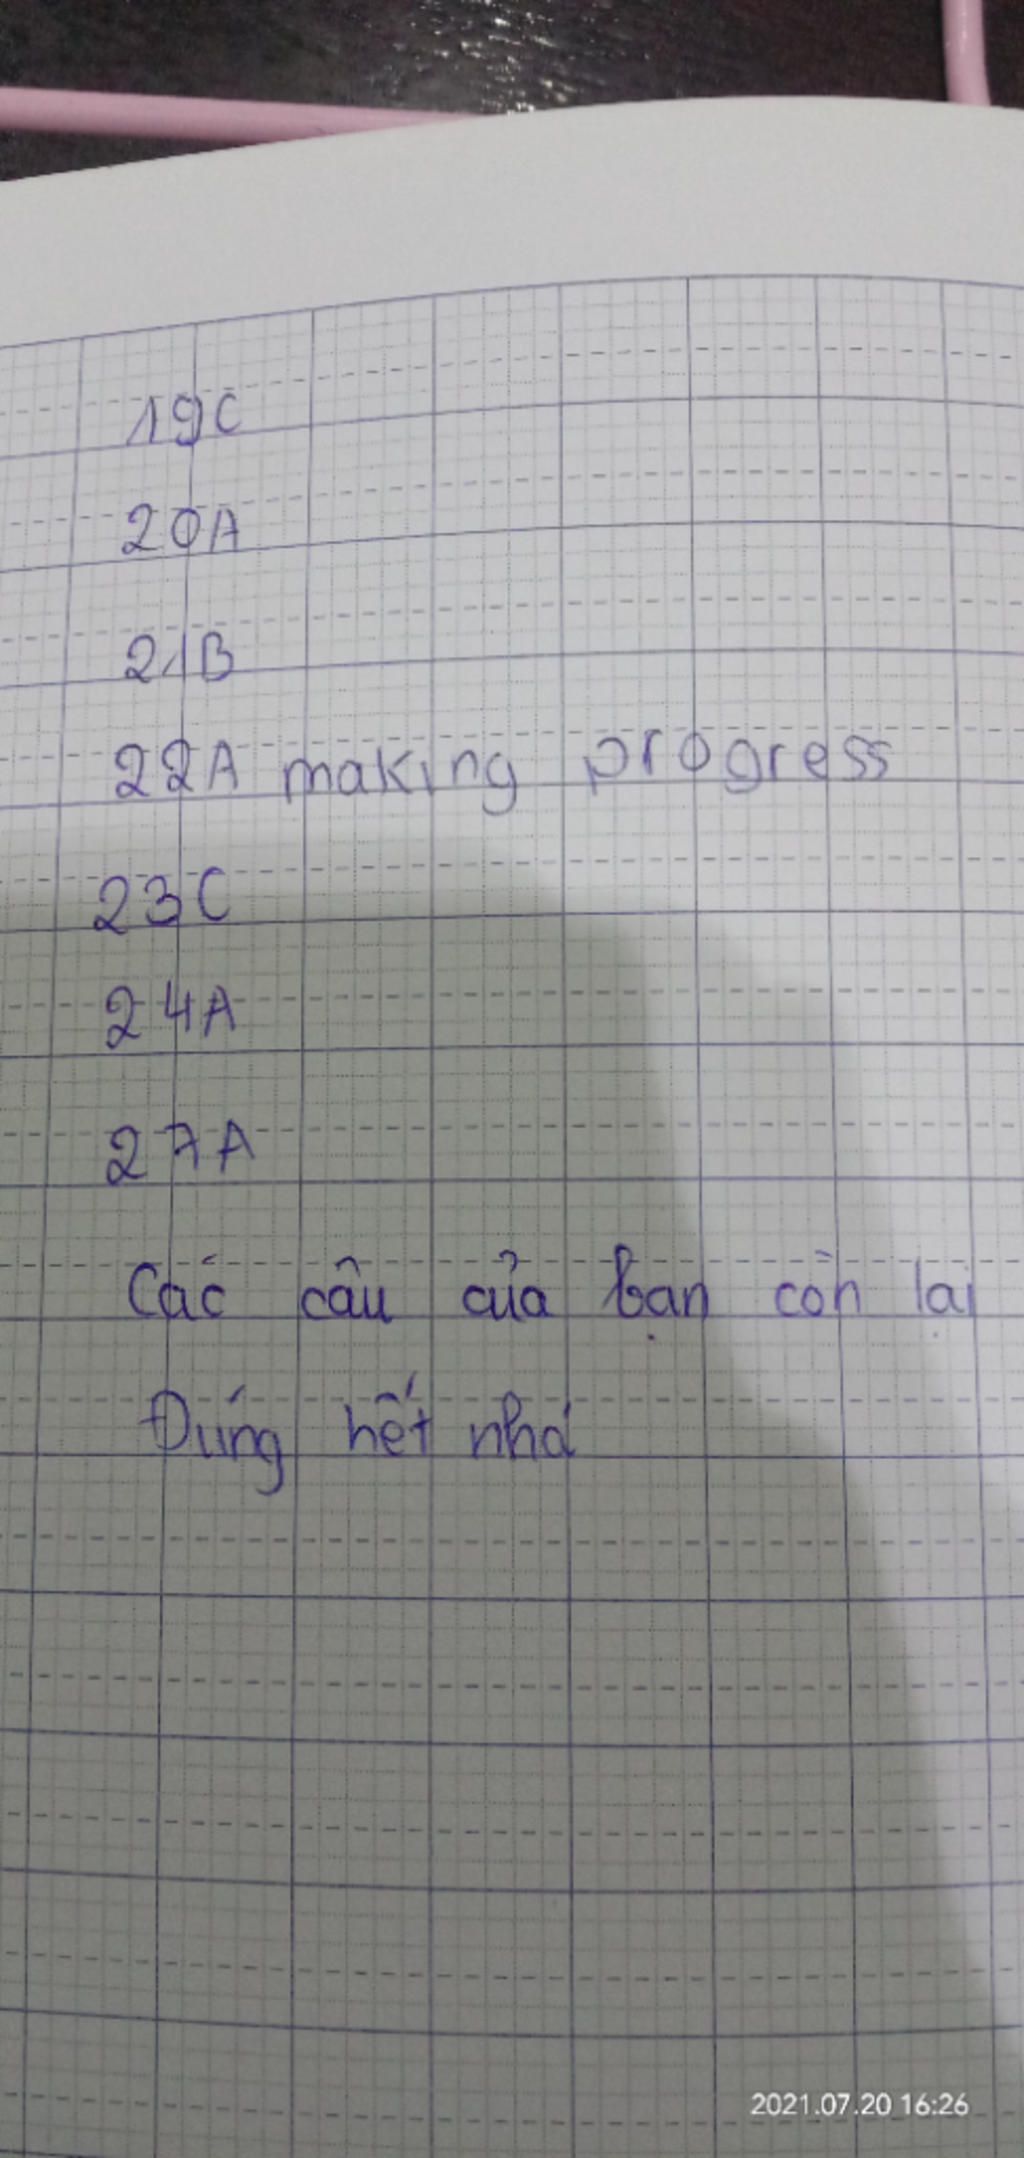 19C
20A
21B
22A making progress
23C
24A
27A
Các câu của bạn còn lại
Đúng hết nhá
2021.07.20 16:26